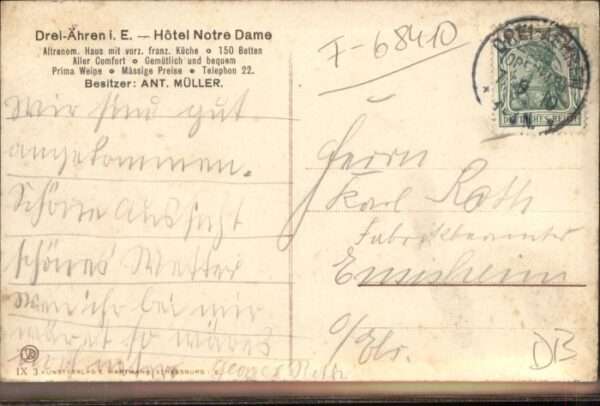 Drei-Ähren i. E. — Hôtel Notre Dame
Altrenom. Haus mit vorz. franz. Küche • 150 Betten
Aller Comfort • Gemütlich und bequem
Prima Weine • Mässige Preise • Telephon 22.
Besitzer: ANT. MÜLLER.
F-68410
DREI-AEHREN
DEUTSCHES REICH
Wir sind gut
angekommen.
Schöne Aussicht
schönes Wetter
Wen ihr bei mir
wäret so wäres
Georges Roth
Herrn
Karl Roth
Fabrikbeamter
Ensisheim
O/Els.
DB
IX 3 KUNSTVERLAG E. HARTMANN, STRASSBURG I. E.